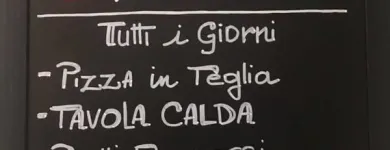 Tutti i Giorni
- Pizza in Teglia
- TAVOLA CALDA